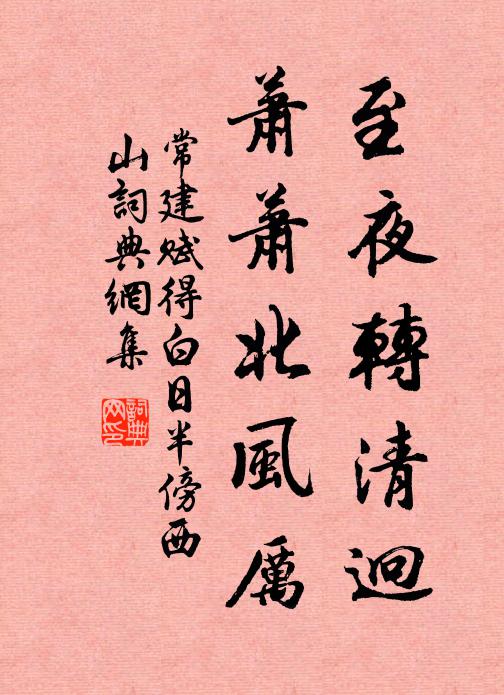 至夜轉清迥
蕭蕭北風厲
常建賦得白日半傍西
山詞典網集
詞典
网印